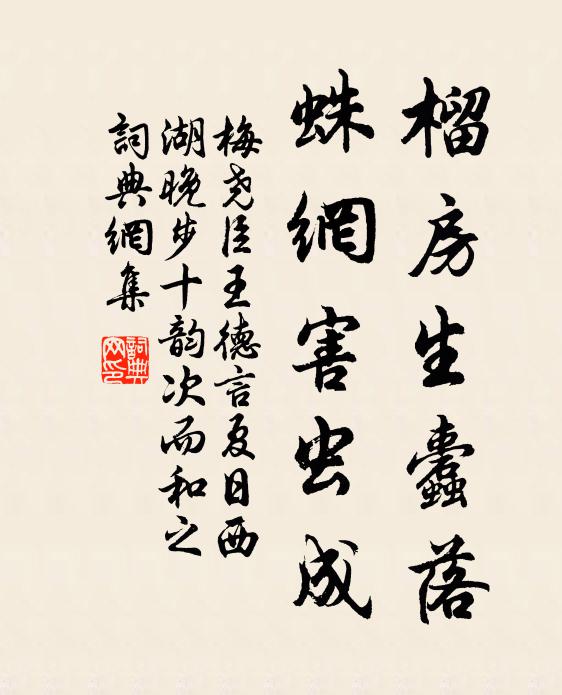 榴房生蠹落
蛛網害虫成
梅尧臣王德言夏日西
湖晚步十韵次而和之
詞典網集
詞典
网印